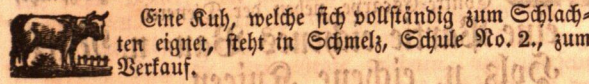 Eine Kuh, welche sich vollständig zum Schlach-
ten eignet, steht in Schmelz, Schule No. 2., zum
Verkauf.